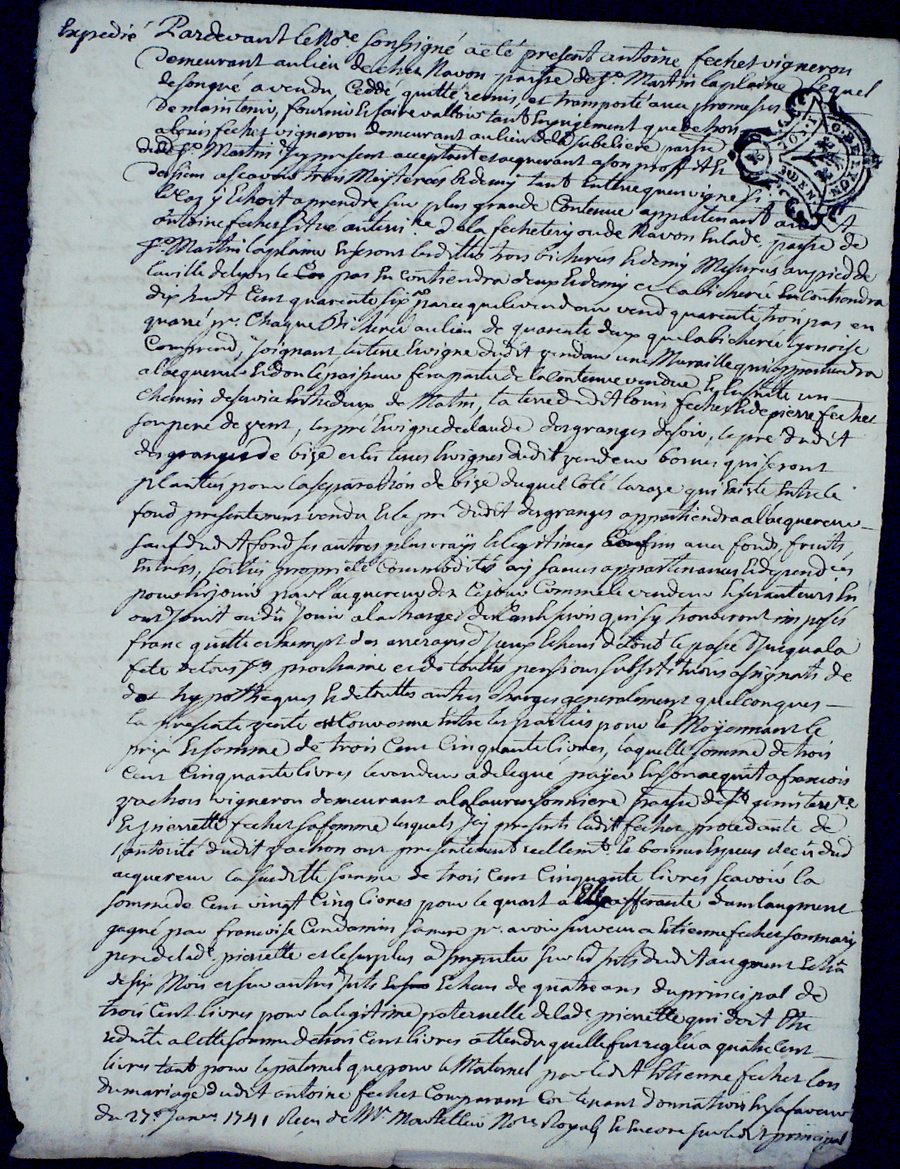 Expedié Pardevant le No.re soussigné a eté present antoine fechet vigneron
demeurant au lieu de chez Navon parsse de St. Martin la plaine lequel
de son gré a vendu, ceddé quitté remis et transporté avec promesses
De maintenir, fournir et faire valloir tant En jugement que dehors
a louis fechet vigneron demeurant au lieu de la parsse
dud. St. Martin Icy present acceptant et aquerant a son proffit &
des siens ascavoir trois Meyterées & demy tant En terre que vigne Si
le Cas y Echoit a prendre sur plus grande Contenue appartenant aud.
antoine fechet Situé au terri.re de la fechetery ou de Navon En lade. parsse de
St. Martin la plaine Et seront lesdittes trois bicherées Et demy Mesurés au pied de
la ville de Lyon le pas En contiendra deux Et demy et la bicherée En Contiendra
dix huit Cent quarente six par ce que le vendeur vend quarente trois pas en
quaré pr. Chaque Bicherée au lieu de quarente deux que la bicherée Lyonoise
Comprend, Joignant la terre Et vigne dudit vendeur une Muraille qui appartiendra
a l'acquereur Et dont l'epaisseur fera partie de la Contenue vendue Et Ensuite un
chemin de service Entredeux de Matin, la terre dudit louis fechet & de pierre fechet
son pere de vent, les pré Et vigne de claude desgranges de soir, le pré dudit
desgranges de bize et les terres Et vignes dudit vendeur bornes qui seront
plantées pour la separation de bize duquel coté la raze qui Existe Entre le
fond presentement vendu Et le pré dudit desgranges appartiendra a l'acquereur
sauf dudit fond ses autres plus vrays & legitimes Confins avec fonds, fruits,
Entrées, sorties proprieté Commodités aysances appartenances & dependces
pour En jouir par l'acquereur dez Ce jour Comme le vendeur & ses auteurs En
ont Jouit ou dû Jouir a la charge des Cens & servis qui s'y trouveront imposés
franc quitte et Exempt des arrerages d'yceux Echeus de tout le passé Jusqu'a la
fete de tous Sts prochaine et de touttes pensions substitutions assignats de
dot hypotheques & de touttes autres charges generalement quelconques
la presente vente Convenue Entre les parties pour & Moÿennant le
prix Et somme de trois Cent Cinquante livres, laquelle somme de trois
Cent Cinquante livres le vendeur a delegué payer En son acquit a francois
vachon vigneron demeurant a la laurensonniere parsse de St. genis terre n.re
& pierrette fechet sa femme lesquels Icy presents ladit. fechet procedante de
l'autorité dudit vachon ont presentement reellemt. & bonnes Especes receü dud
acquereur la susditte somme de trois Cent Cinquante livres scavoir la
somme de Cent vingt Cinq livres pour le quart a Elle afferante dans l'augment
gagné par francoise Condamin sa mere pr. avoir survecu a Etienne fechet son mary
pere de lade. pierrette et le surplus a Imputer sur les Interets dudit augment
de six Mois et sur autres Interets Echeus de quatre ans du principal de
trois Cent livres pour la legitime paternelle de lade. pierrette qui doit Etre
reduite a cette somme de trois Cent livres attendu qu'elle fut reglée a quatre Cent
livres tant pour le paternel que pour le Maternel par ledit Etienne fechet lors
du mariage dudit antoine fechet Comparant Contenant donnation En sa faveur
du 27e. Janer. 1741 Receu de Me. Montellier No.re Royal, & Encore sur ledit principal